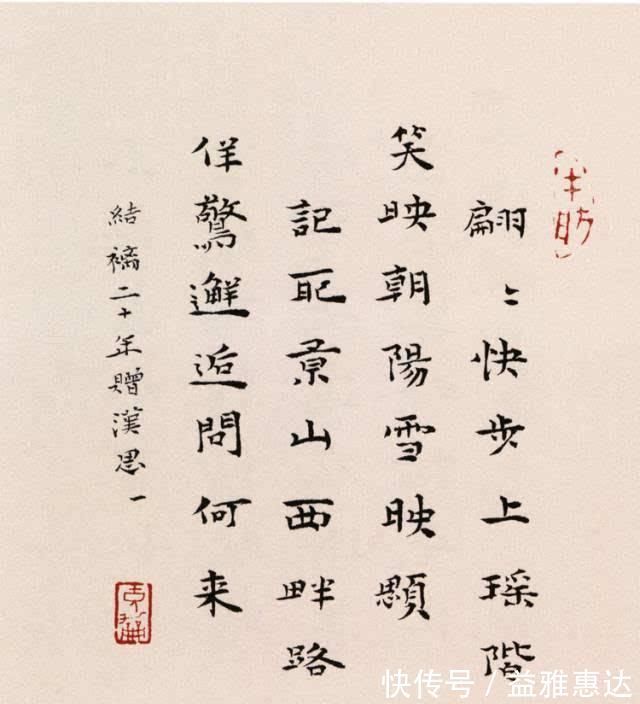 翩〻快步上瑶階
笑映朝陽雪映顋
記取景山西畔路
佯驚邂逅問何来
結褵二十年贈漢思 一
快传号/益雅惠达